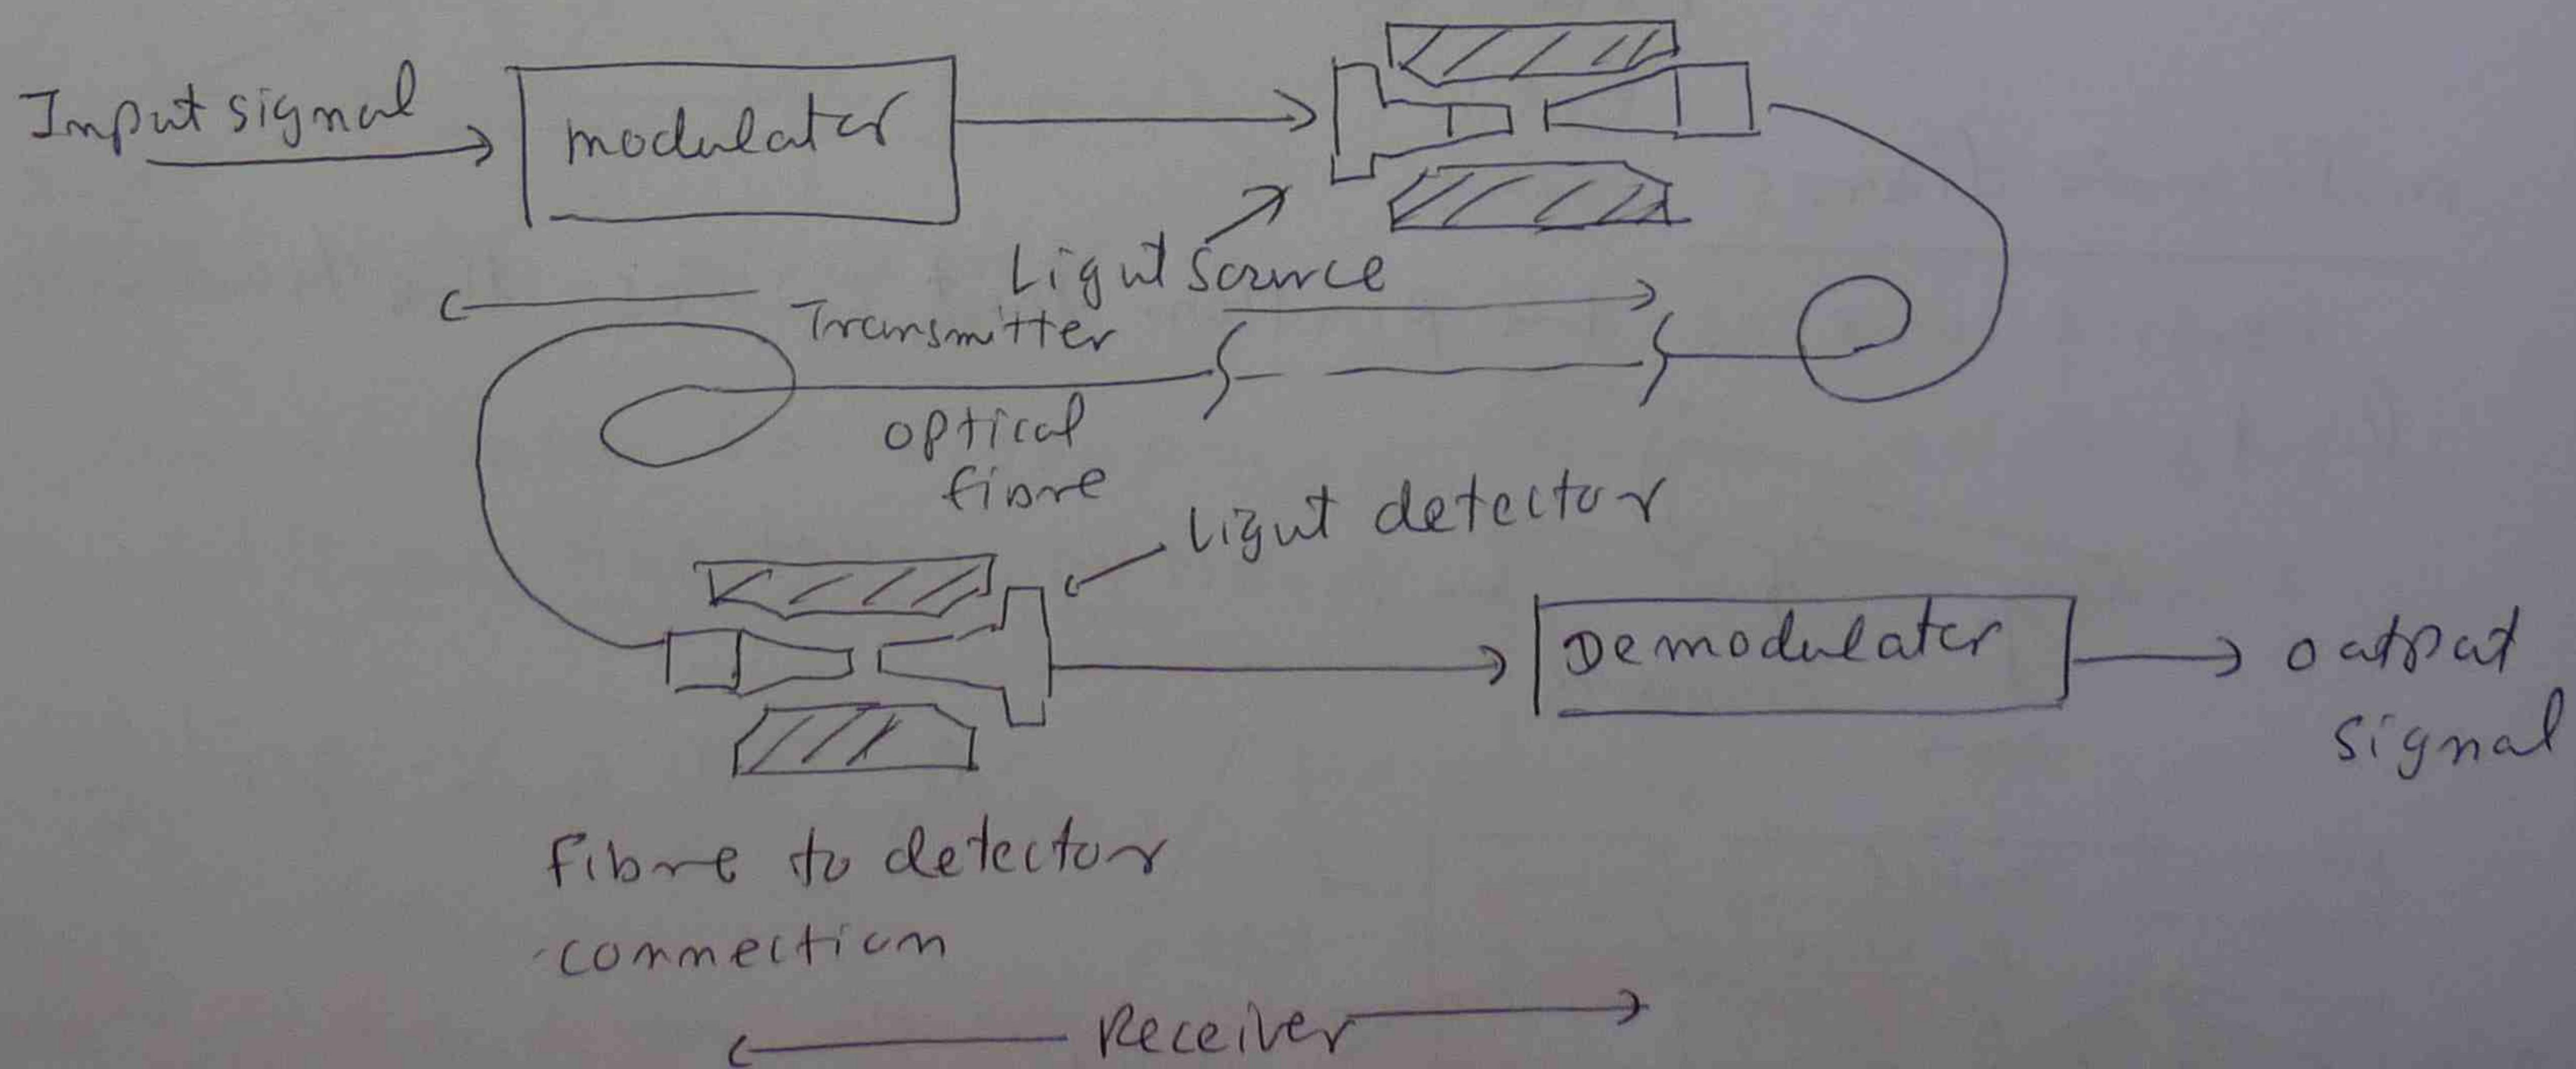 Input signal
modulator
Light Source
Transmitter
optical
fibre
Light detector
Demodulator
output
signal
fibre to detector
connection
Receiver